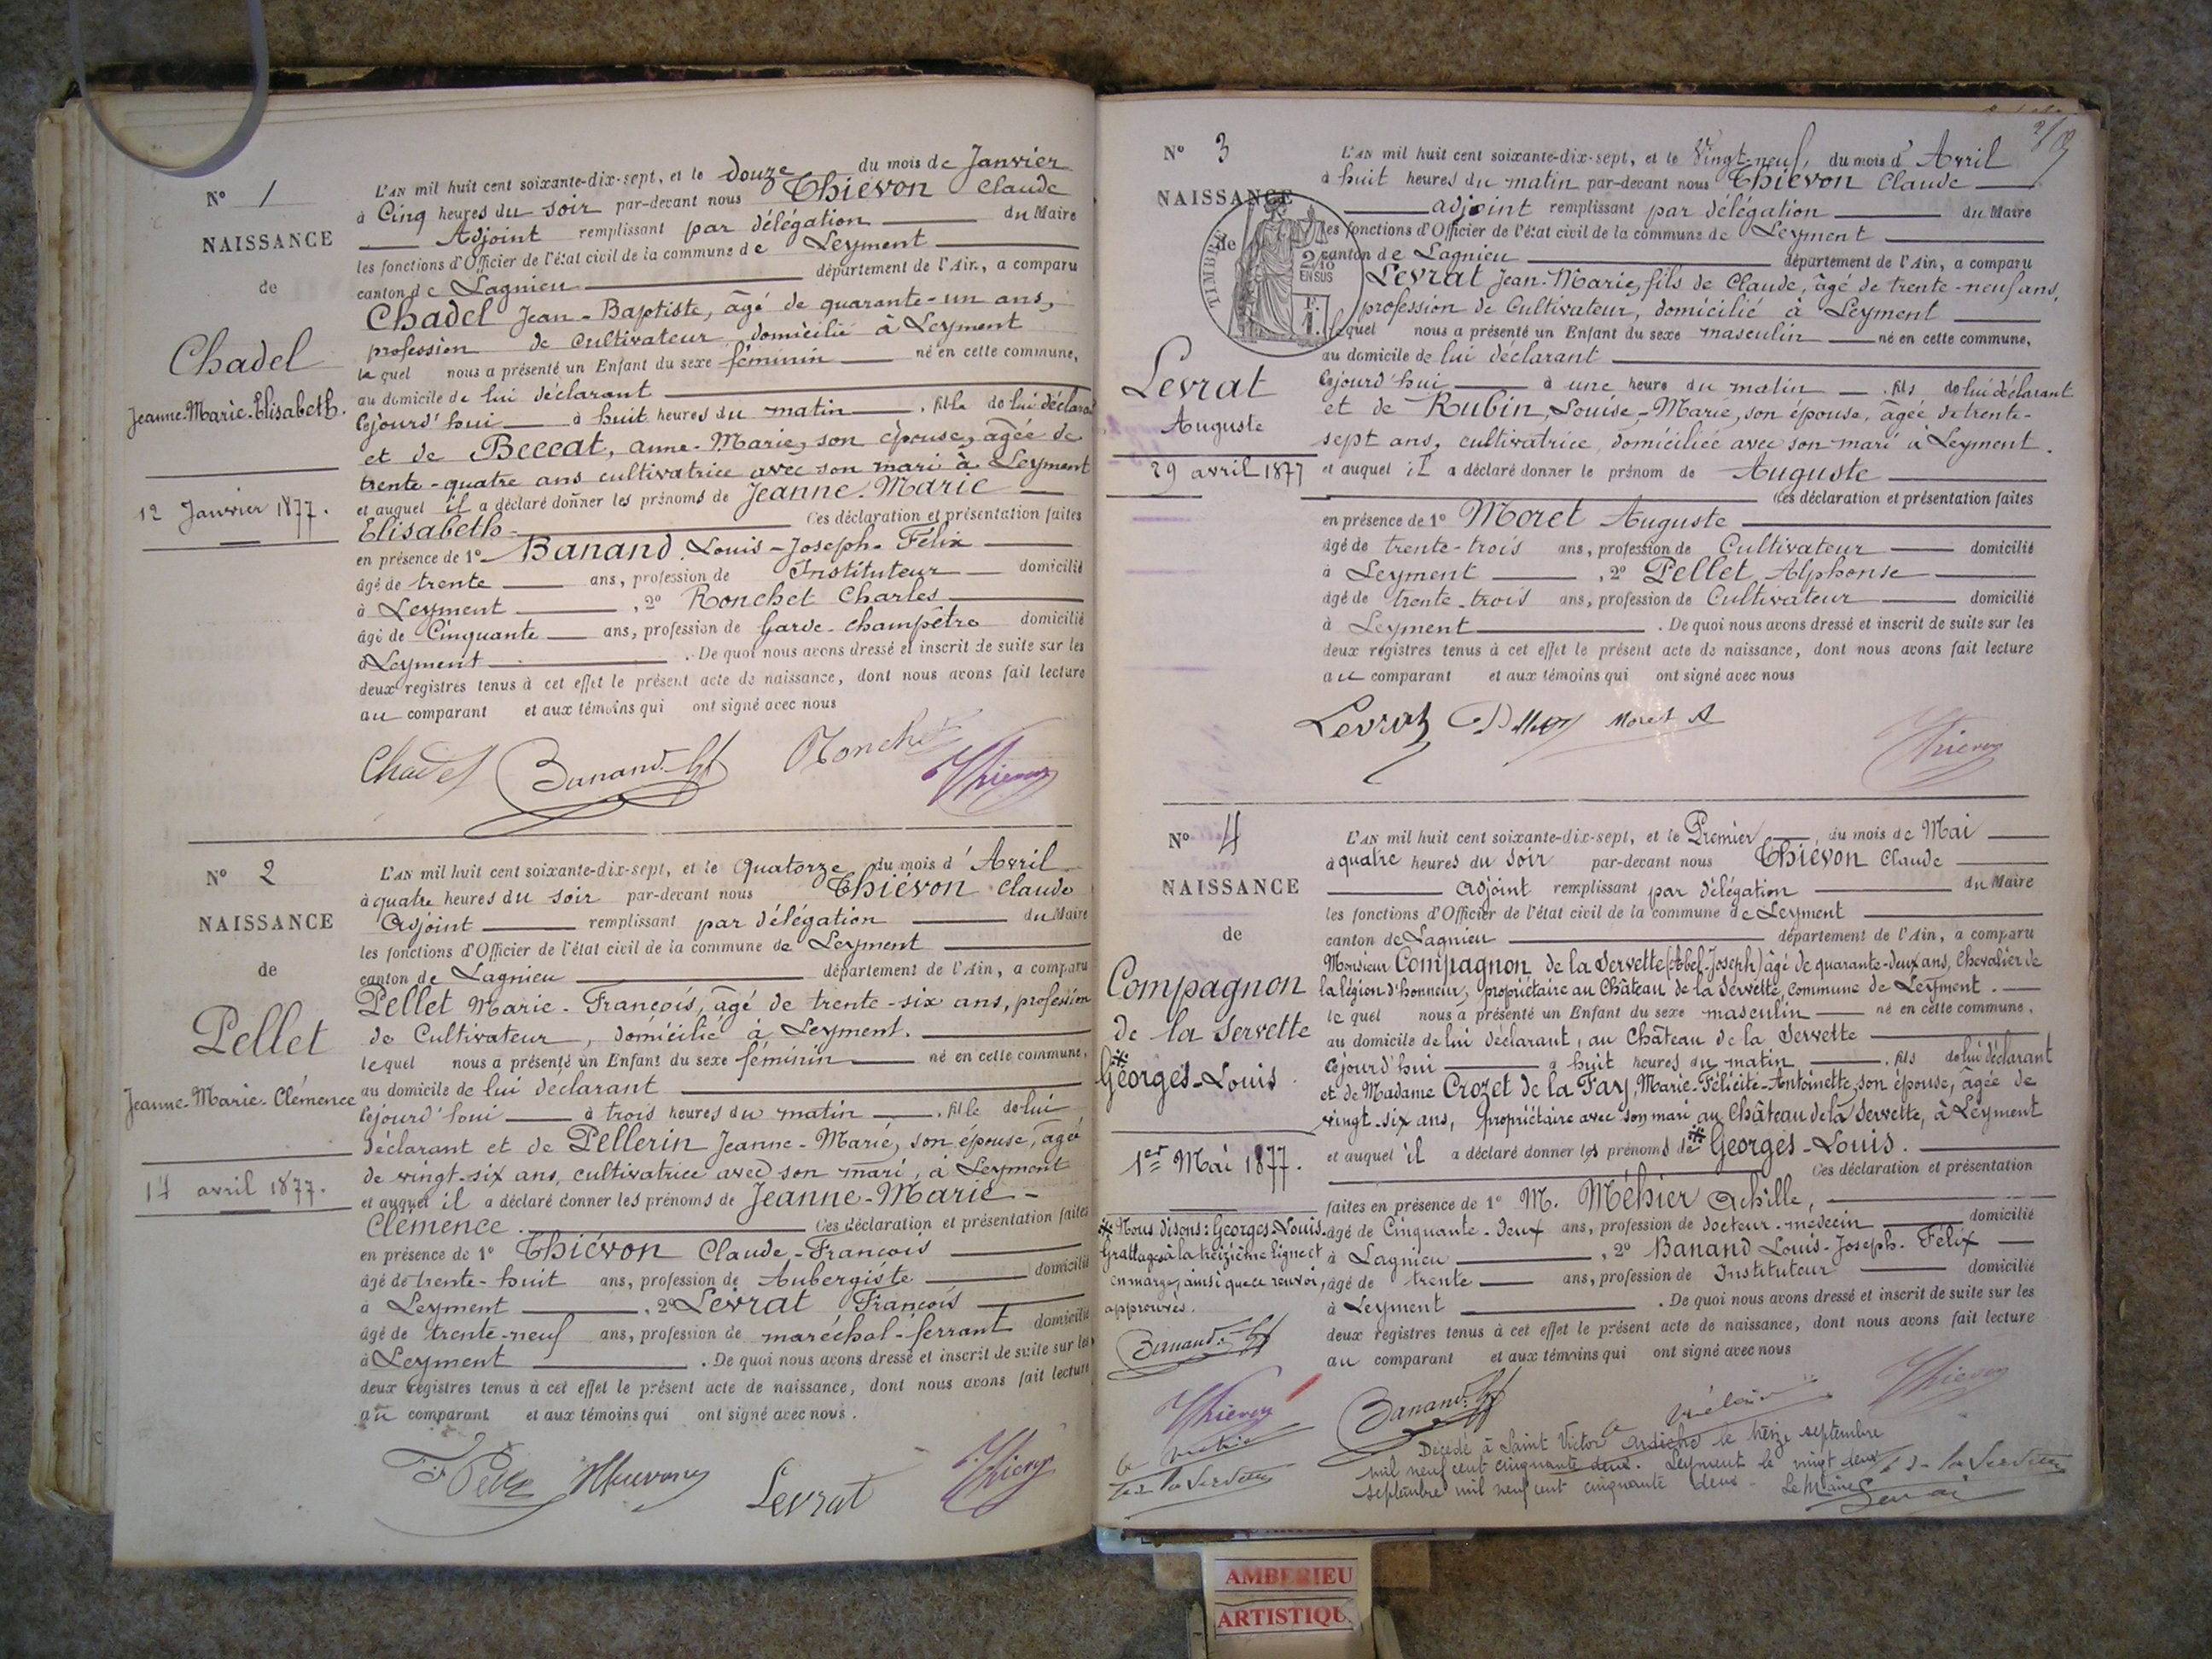 N° 1
NAISSANCE
de
Chadel
Jeanne-Marie-Elisabeth.
12 Janvier 1877.
L'AN mil huit cent soixante-dix-sept, et le douze du mois de Janvier
à Cinq heures du soir par-devant nous Thiévon Claude
Adjoint remplissant par délégation du Maire
les fonctions d'Officier de l'état civil de la commune de Leyment
canton de Lagnieu département de l'Ain, a comparu
Chadel Jean-Baptiste, âgé de quarante-un ans,
profession de Cultivateur domicilié à Leyment
lequel nous a présenté un Enfant du sexe féminin né en cette commune,
au domicile de lui déclarant
cejourd'hui à huit heures du matin . fille de lui déclarant
et de Beccat, Anne-Marie, son épouse, âgée de
trente-quatre ans cultivatrice avec son mari à Leyment
et auquel il a déclaré donner les prénoms de Jeanne-Marie
Elisabeth Ces déclaration et présentation faites
en présence de 1° Banand Louis-Joseph-Félix
âgé de trente ans, profession de Instituteur domicilié
à Leyment , 2° Ronchet Charles
âgé de Cinquante ans, profession de Garde-champêtre domicilié
à Leyment . De quoi nous avons dressé et inscrit de suite sur les
deux registres tenus à cet effet le présent acte de naissance, dont nous avons fait lecture
au comparant et aux témoins qui ont signé avec nous
Chadel Banand Ronchet Thievon
N° 2
NAISSANCE
de
Pellet
Jeanne-Marie-Clémence
14 avril 1877.
L'AN mil huit cent soixante-dix-sept, et le quatorze du mois d'Avril
à quatre heures du soir par-devant nous Thiévon Claude
Adjoint remplissant par délégation du Maire
les fonctions d'Officier de l'état civil de la commune de Leyment
canton de Lagnieu département de l'Ain, a comparu
Pellet Marie-François, âgé de trente-six ans, profession
de Cultivateur, domicilié à Leyment.
lequel nous a présenté un Enfant du sexe féminin né en cette commune,
au domicile de lui déclarant
cejourd'hui à trois heures du matin . fille de lui
déclarant et de Pellerin Jeanne-Marie, son épouse, âgée
de vingt-six ans, cultivatrice avec son mari, à Leyment
et auquel il a déclaré donner les prénoms de Jeanne-Marie-
Clémence. Ces déclaration et présentation faites
en présence de 1° Thiévon Claude-François
âgé de trente-huit ans, profession de Aubergiste domicilié
à Leyment , 2° Levrat François
âgé de trente-neuf ans, profession de maréchal-ferrant domicilié
à Leyment . De quoi nous avons dressé et inscrit de suite sur les
deux registres tenus à cet effet le présent acte de naissance, dont nous avons fait lecture
au comparant et aux témoins qui ont signé avec nous.
Levrat Thievon
N° 3
NAISSANCE
de
TIMBRE
2/10
EN SUS
Levrat
Auguste
29 avril 1877
L'AN mil huit cent soixante-dix-sept, et le Vingt-neuf, du mois d'Avril
à huit heures du matin par-devant nous Thiévon Claude
adjoint remplissant par délégation du Maire
les fonctions d'Officier de l'état civil de la commune de Leyment
canton de Lagnieu département de l'Ain, a comparu
Levrat Jean-Marie, fils de Claude, âgé de trente-neuf ans,
profession de Cultivateur, domicilié à Leyment
lequel nous a présenté un Enfant du sexe masculin né en cette commune,
au domicile de lui déclarant
cejourd'hui à une heure du matin . fils de lui déclarant
et de Rubin, Louise-Marie, son épouse, âgée de trente-
sept ans, cultivatrice domiciliée avec son mari à Leyment.
et auquel il a déclaré donner le prénom de Auguste
Ces déclaration et présentation faites
en présence de 1° Moret Auguste
âgé de trente-trois ans, profession de Cultivateur domicilié
à Leyment , 2° Pellet Alphonse
âgé de trente-trois ans, profession de Cultivateur domicilié
à Leyment . De quoi nous avons dressé et inscrit de suite sur les
deux registres tenus à cet effet le présent acte de naissance, dont nous avons fait lecture
au comparant et aux témoins qui ont signé avec nous
Levrat Moret A Thievon
N° 4
NAISSANCE
de
Compagnon
de la Servette
* Georges-Louis.
1er Mai 1877.
* Nous disons: Georges-Louis.
Grattages à la treizième ligne et
en marge, ainsi que ce renvoi,
approuvés.
Banand
Thievon
de la Servette
L'AN mil huit cent soixante-dix-sept, et le Premier du mois de Mai
à quatre heures du soir par-devant nous Thiévon Claude
adjoint remplissant par délégation du Maire
les fonctions d'Officier de l'état civil de la commune de Leyment
canton de Lagnieu département de l'Ain, a comparu
Monsieur Compagnon de la Servette (Abel-Joseph) âgé de quarante-deux ans, Chevalier de
la légion d'honneur, propriétaire au Château de la Servette, commune de Leyment.
lequel nous a présenté un Enfant du sexe masculin né en cette commune,
au domicile de lui déclarant, au Château de la Servette
cejourd'hui à huit heures du matin . fils de lui déclarant
et de Madame Crozet de la Fay, Marie-Félicité-Antoinette, son épouse, âgée de
vingt-six ans, propriétaire avec son mari au Château de la Servette, à Leyment
et auquel il a déclaré donner les prénoms de * Georges-Louis.
Ces déclaration et présentation
faites en présence de 1° M. Méhier Achille,
âgé de Cinquante-deux ans, profession de docteur-médecin domicilié
à Lagnieu , 2° Banand Louis-Joseph-Félix
âgé de trente ans, profession de Instituteur domicilié
à Leyment . De quoi nous avons dressé et inscrit de suite sur les
deux registres tenus à cet effet le présent acte de naissance, dont nous avons fait lecture
au comparant et aux témoins qui ont signé avec nous
Banand Méhier Thievon
Décédé à Saint Victor Ardèche le treize septembre
mil neuf cent cinquante deux. Leyment le vingt deux
septembre mil neuf cent cinquante deux. Le Maire
de la Servette
AMBERIEU
ARTISTIQUE